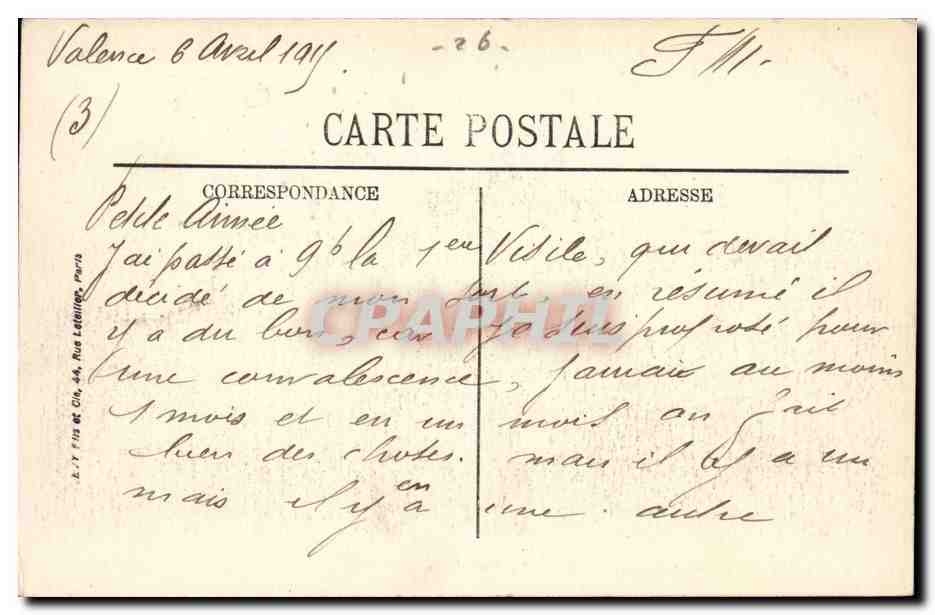 Valence 6 Avril 1915.
- 26 -
F M.
(3)
CARTE POSTALE
CORRESPONDANCE
ADRESSE
Petite Aimée
J'ai passé à 9h la 1ere Visite, qui devait
décidé de mon sort, en résumé il
y a du bon, car je suis proposé pour
une convalescence, j'aurai au moins
1 mois et en un mois on fait
bien des choses. mais il y a un
mais il y en a une autre
E.L.V Fils et Cie, 44, Rue Letellier, Paris
CPAPHIL